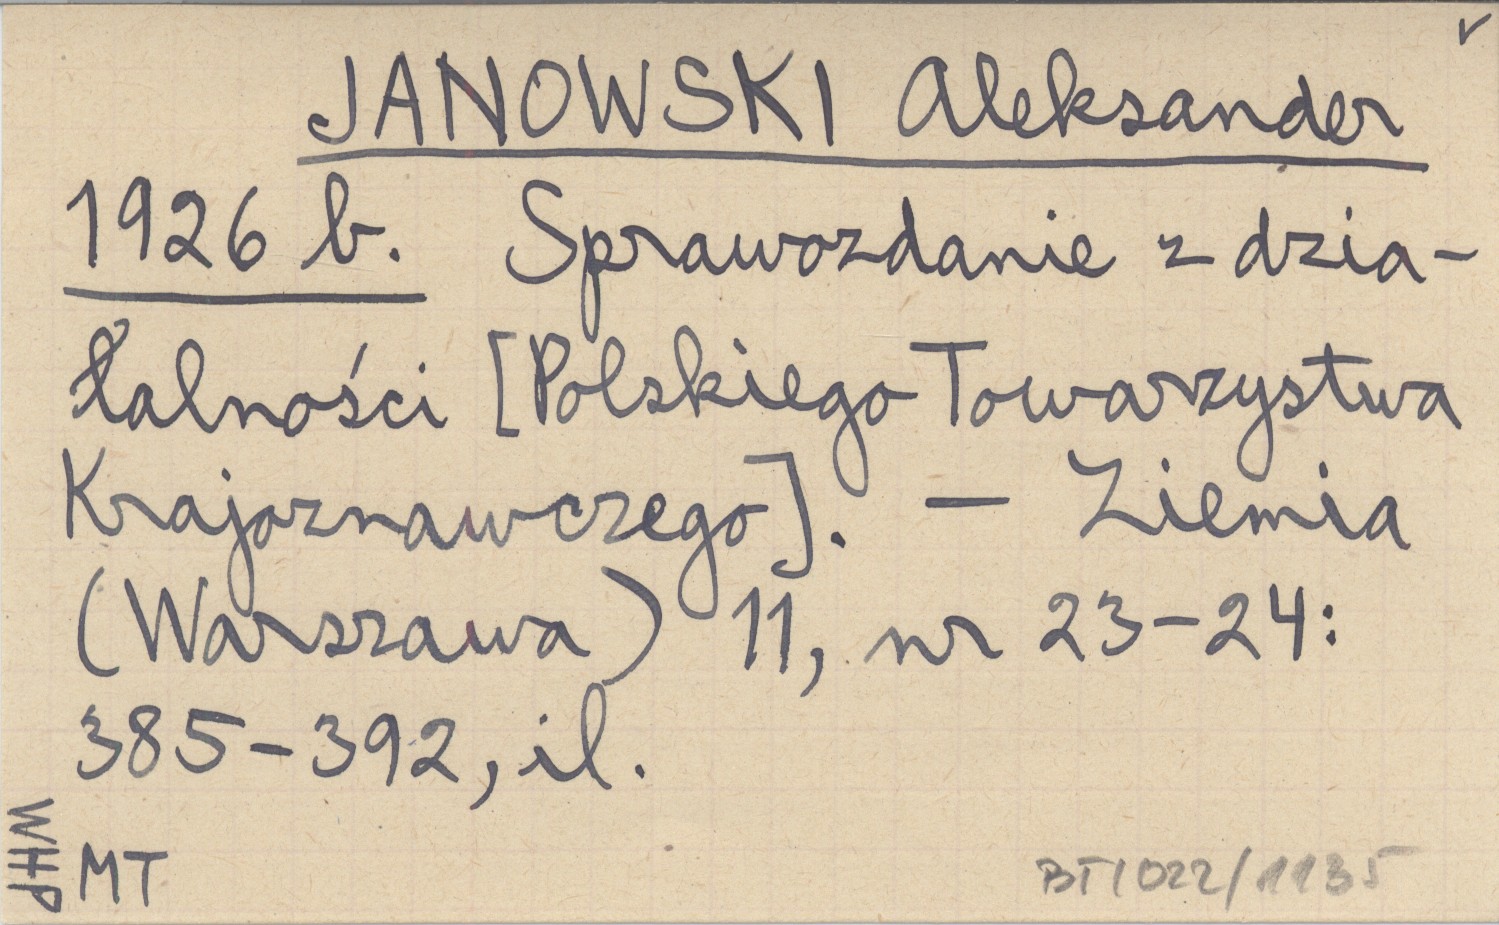 JANOWSKI Aleksander
1926 b. Sprawozdanie z dzia-
łalności [Polskiego Towarzystwa
Krajoznawczego]. — Ziemia
(Warszawa) 11, nr 23-24:
385-392, il.
WHP
MT
BTI 022/1135